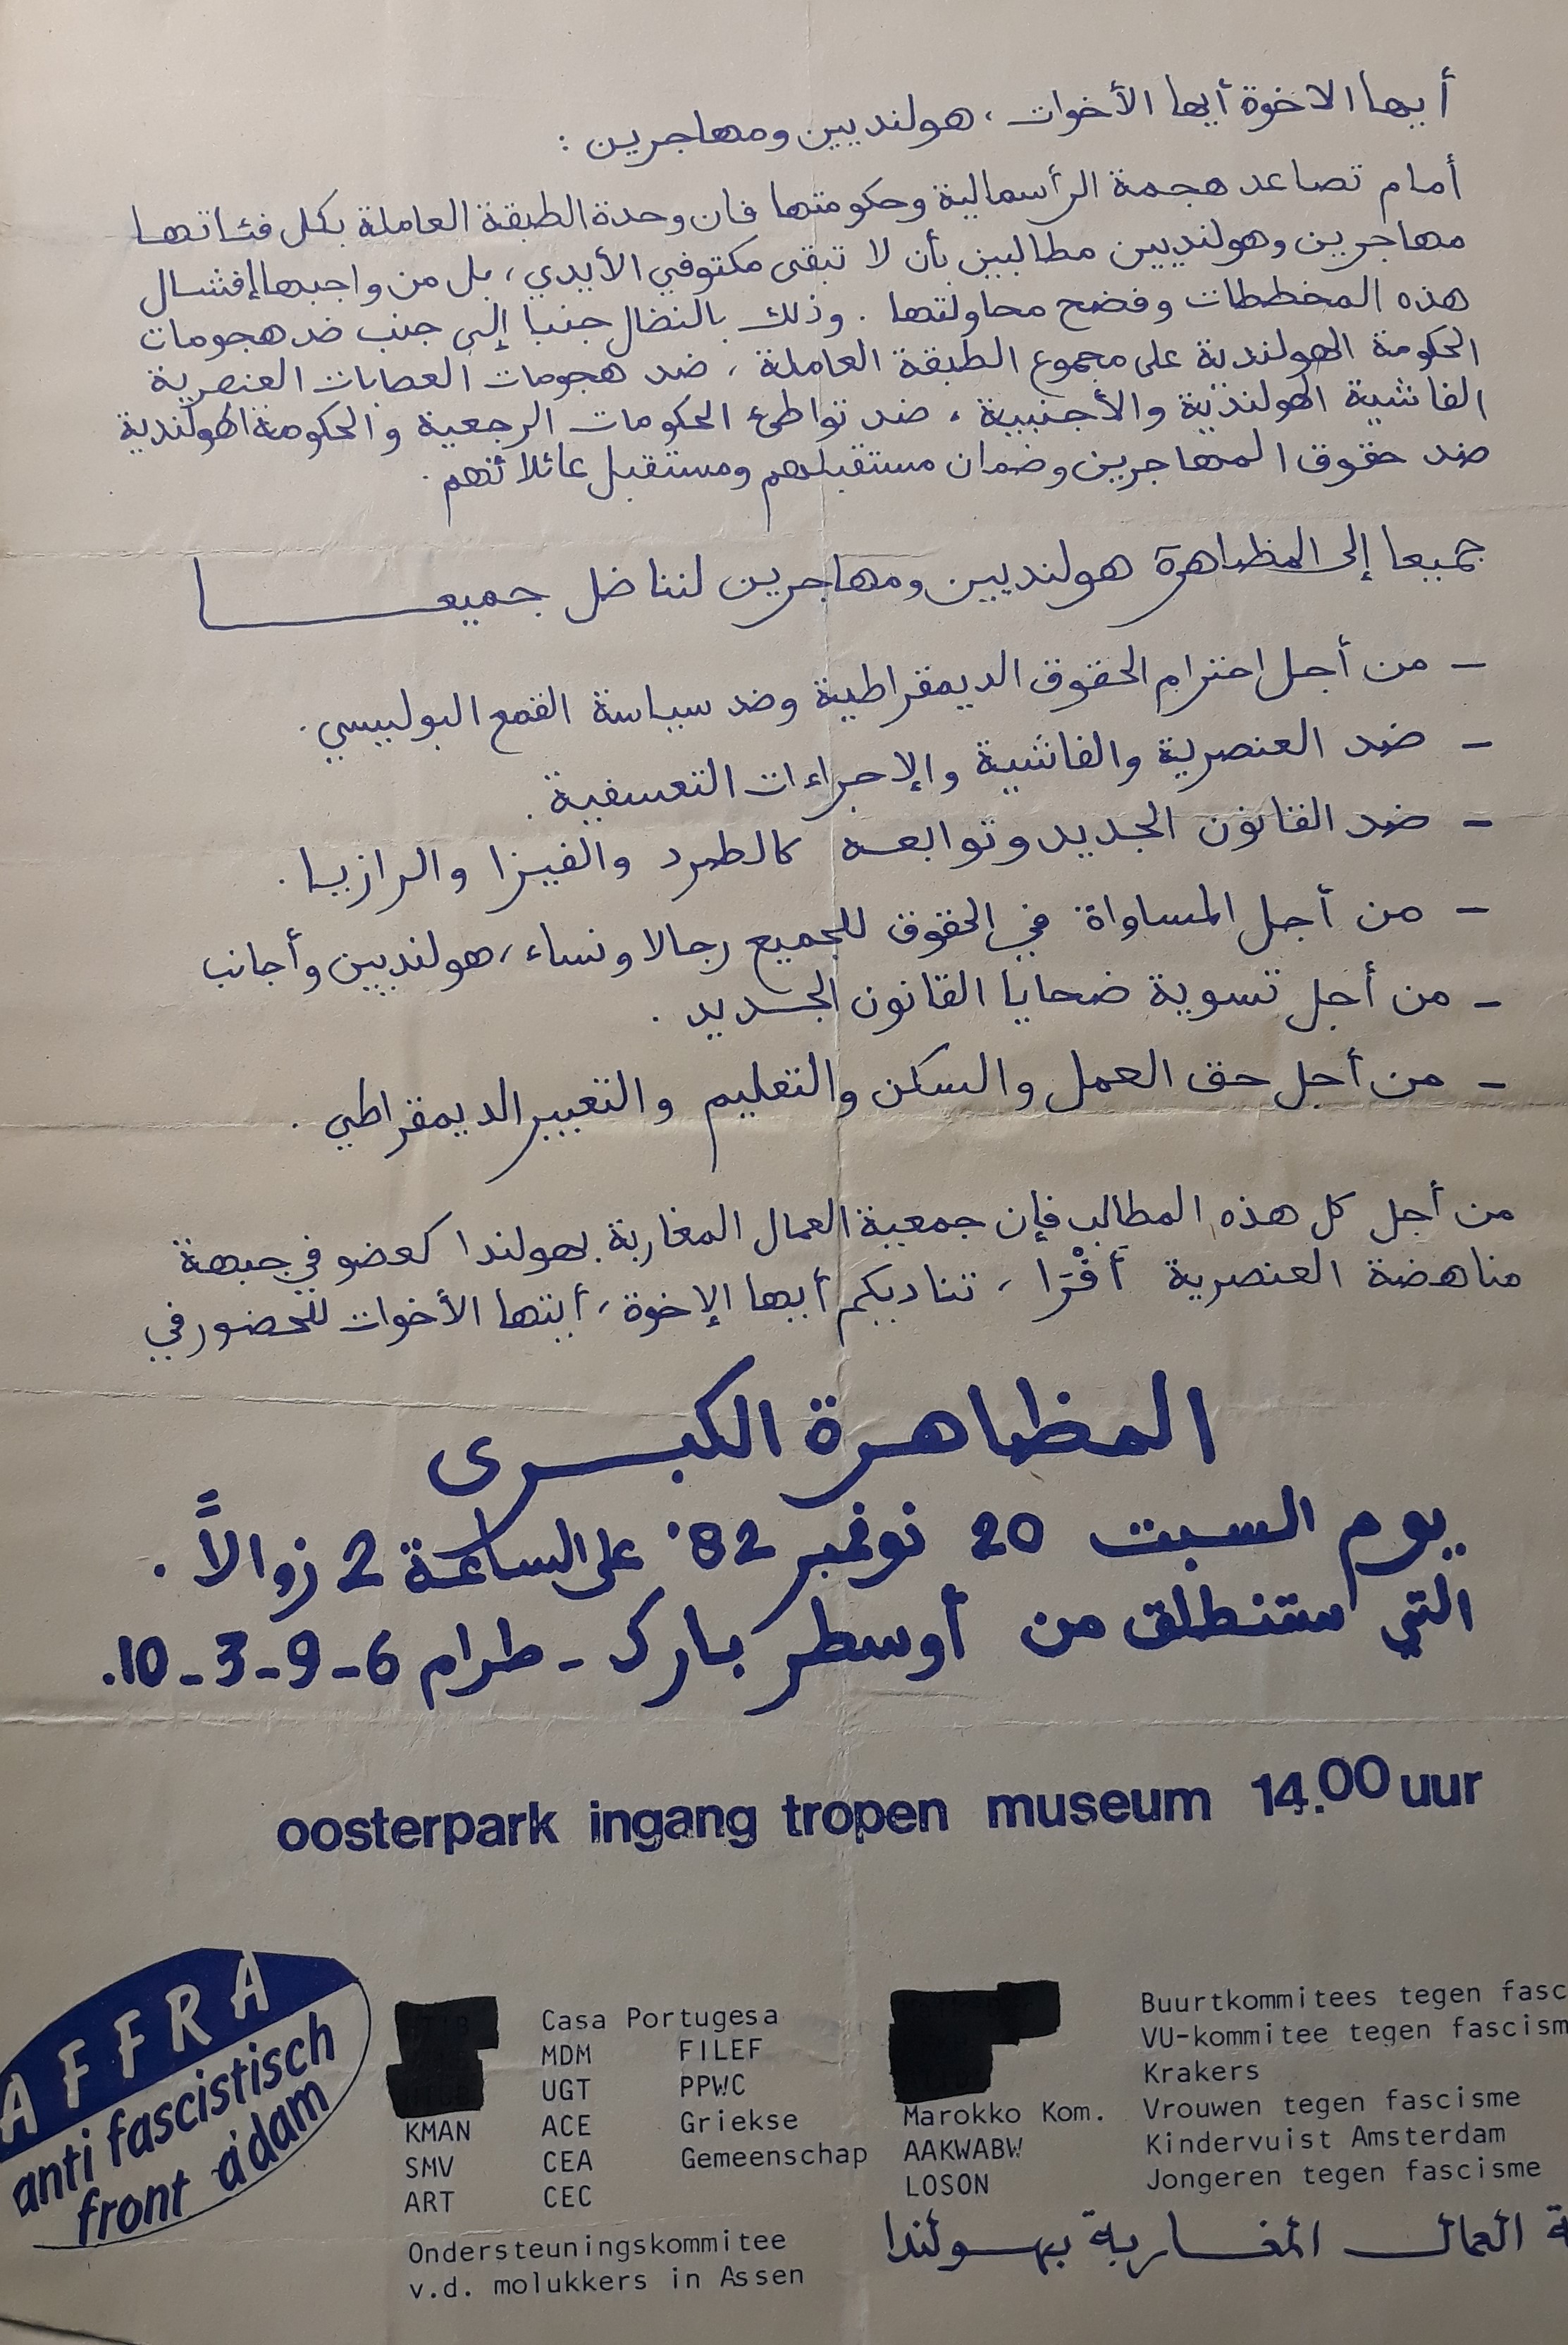 أيها الاخوة أيها الأخوات، هولنديين ومهاجرين :
أمام تصاعد هجمة الرأسمالية وحكومتها فان وحدة الطبقة العاملة بكل فئاتها
مهاجرين وهولنديين مطالبين بأن لا تبقى مكتوفي الأيدي، بل من واجبها إفشال
هذه المخططات وفضح محاولتها . وذلك بالنضال جنبا إلى جنب ضد هجومات
الحكومة الهولندية على مجموع الطبقة العاملة، ضد هجومات العصابات العنصرية
الفاشية الهولندية والأجنبية، ضد تواطئ الحكومات الرجعية والحكومة الهولندية
ضد حقوق المهاجرين وضمان مستقبلهم ومستقبل عائلاتهم.
جميعا إلى المظاهرة هولنديين ومهاجرين لنناضل جميعـــــا
- من أجل احترام الحقوق الديمقراطية وضد سياسة القمع البوليسي.
- ضد العنصرية والفاشية والإجراءات التعسفية.
- ضد القانون الجديد وتوابعه كالطرد والفيزا والرازيا.
- من أجل المساواة في الحقوق للجميع رجالا ونساء، هولنديين وأجانب
- من أجل تسوية ضحايا القانون الجديد .
- من أجل حق العمل والسكن والتعليم والتعبير الديمقراطي .
من أجل كل هذه المطالب فإن جمعية العمال المغاربة بهولندا كعضو في جبهة
مناهضة العنصرية أفْرَا، تناديكم أيها الإخوة، أيتها الأخوات للحضور في
المظاهرة الكبـــرى
يوم السبت 20 نونمبر 82' على الساعة 2 زوالاً .
التي ستنطلق من أوسطر بارك - طرام 6-9-3-10.
oosterpark ingang tropen museum 14.00 uur
AFFRA
anti fascistisch
front a'dam
KMAN
SMV
ART
Casa Portugesa
MDM FILEF
UGT PPWC
ACE Griekse
CEA Gemeenschap
CEC
Ondersteuningskommitee
v.d. molukkers in Assen
Marokko Kom.
AAKWABW
LOSON
Buurtkommitees tegen fasc
VU-kommitee tegen fascism
Krakers
Vrouwen tegen fascisme
Kindervuist Amsterdam
Jongeren tegen fascisme
ة العمال المغـــاربة بهـــولندا